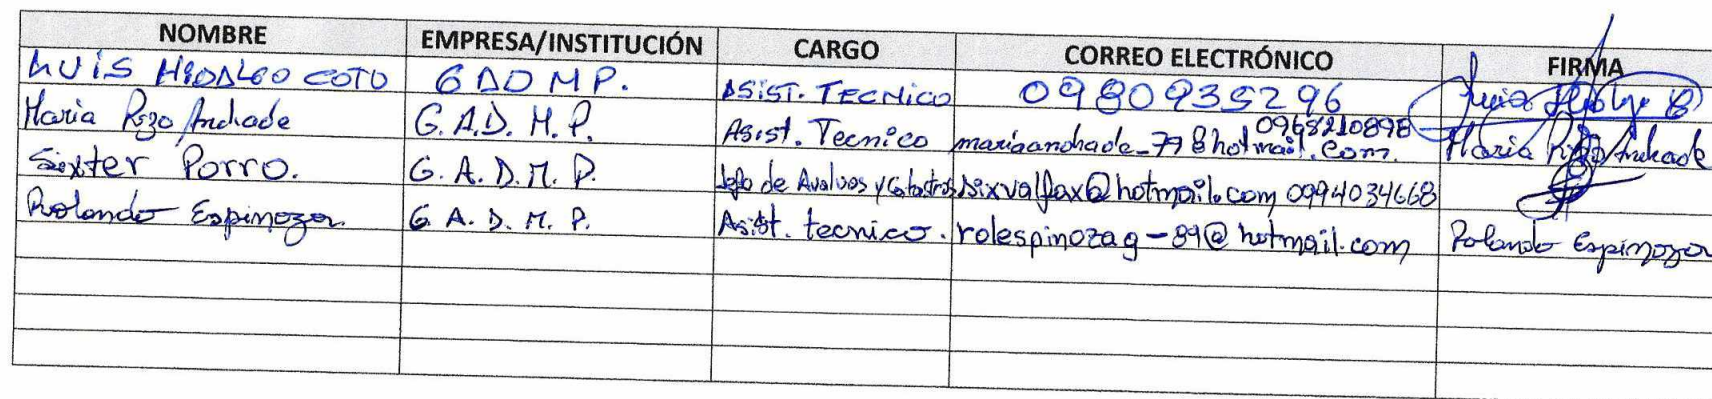 NOMBRE EMPRESA/INSTITUCIÓN CARGO CORREO ELECTRÓNICO FIRMA
LUIS HIDALGO COTO GAD MP. ASIST. TECNICO 0980935296
Maria Rizo Andrade G.A.D. M.P. Asist. Tecnico mariaandrade_77@hotmail.com. 0968210898 Maria Rizo Andrade
Sixter Porro. G.A.D.M.P. Jefe de Avaluos y Catastros sixvalfax@hotmail.com 0994034668
Rolando Espinoza G.A.D.M.P. Asist. tecnico. rolespinozag-89@hotmail.com Rolando Espinoza